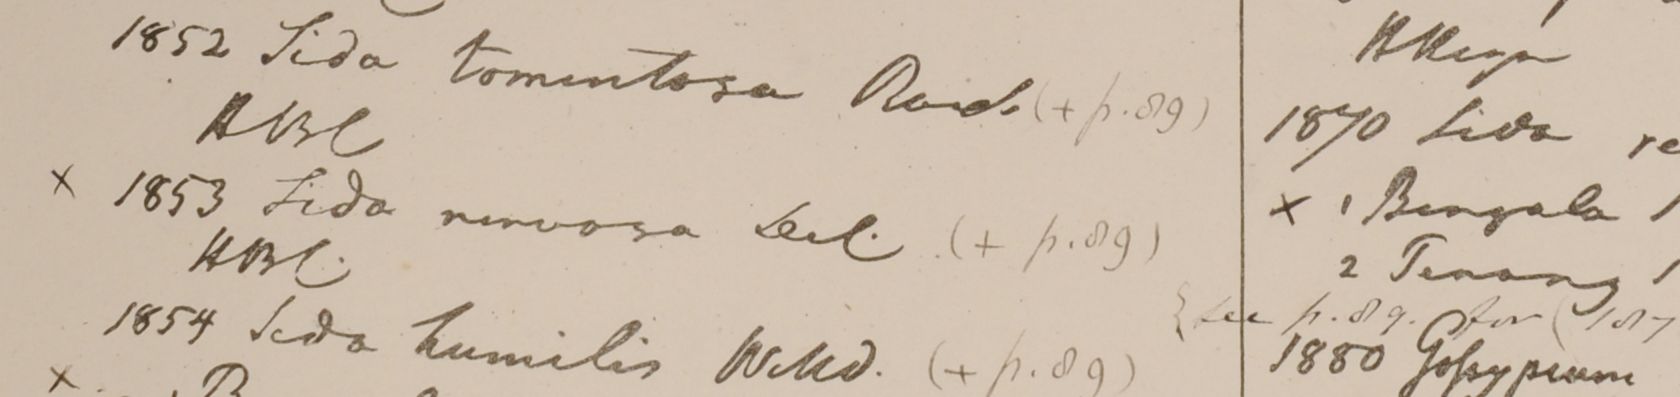 1852 Sida tomentosa Roxb (+ p. 89)
HBC
x 1853 Sida nervosa (+ p. 89)
HBC.
1854 Sida humilis Willd. (+ p. 89)
x
HHeyn
1870 Sida re
x 1 Bengala
2 Penang
{see p. 89. for (187
1880 Gossypium